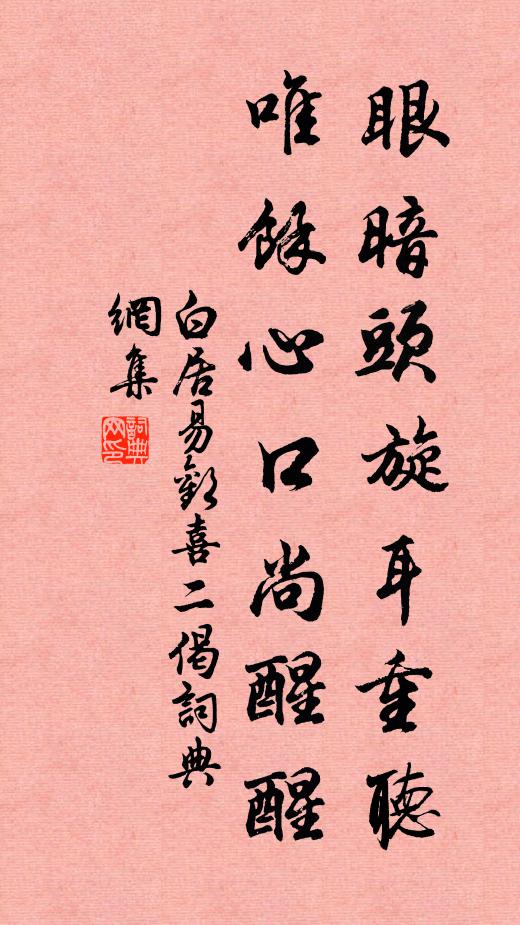 眼暗頭旋耳重聽
唯餘心口尚醒醒
白居易歡喜二偈詞典
網集
詞典網印